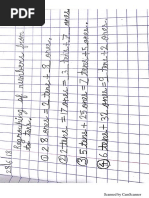 Regrouping of numbers from
① 28 ones = 2 tens + 8 ones.
② 2 tens = 17 ones = 3 tens + 7 ones.
③ 5 tens + 25 ones = 7 tens + 5 ones.
④ 6 tens + 32 ones = 9 tens + 2 ones.
Scanned by CamScanner